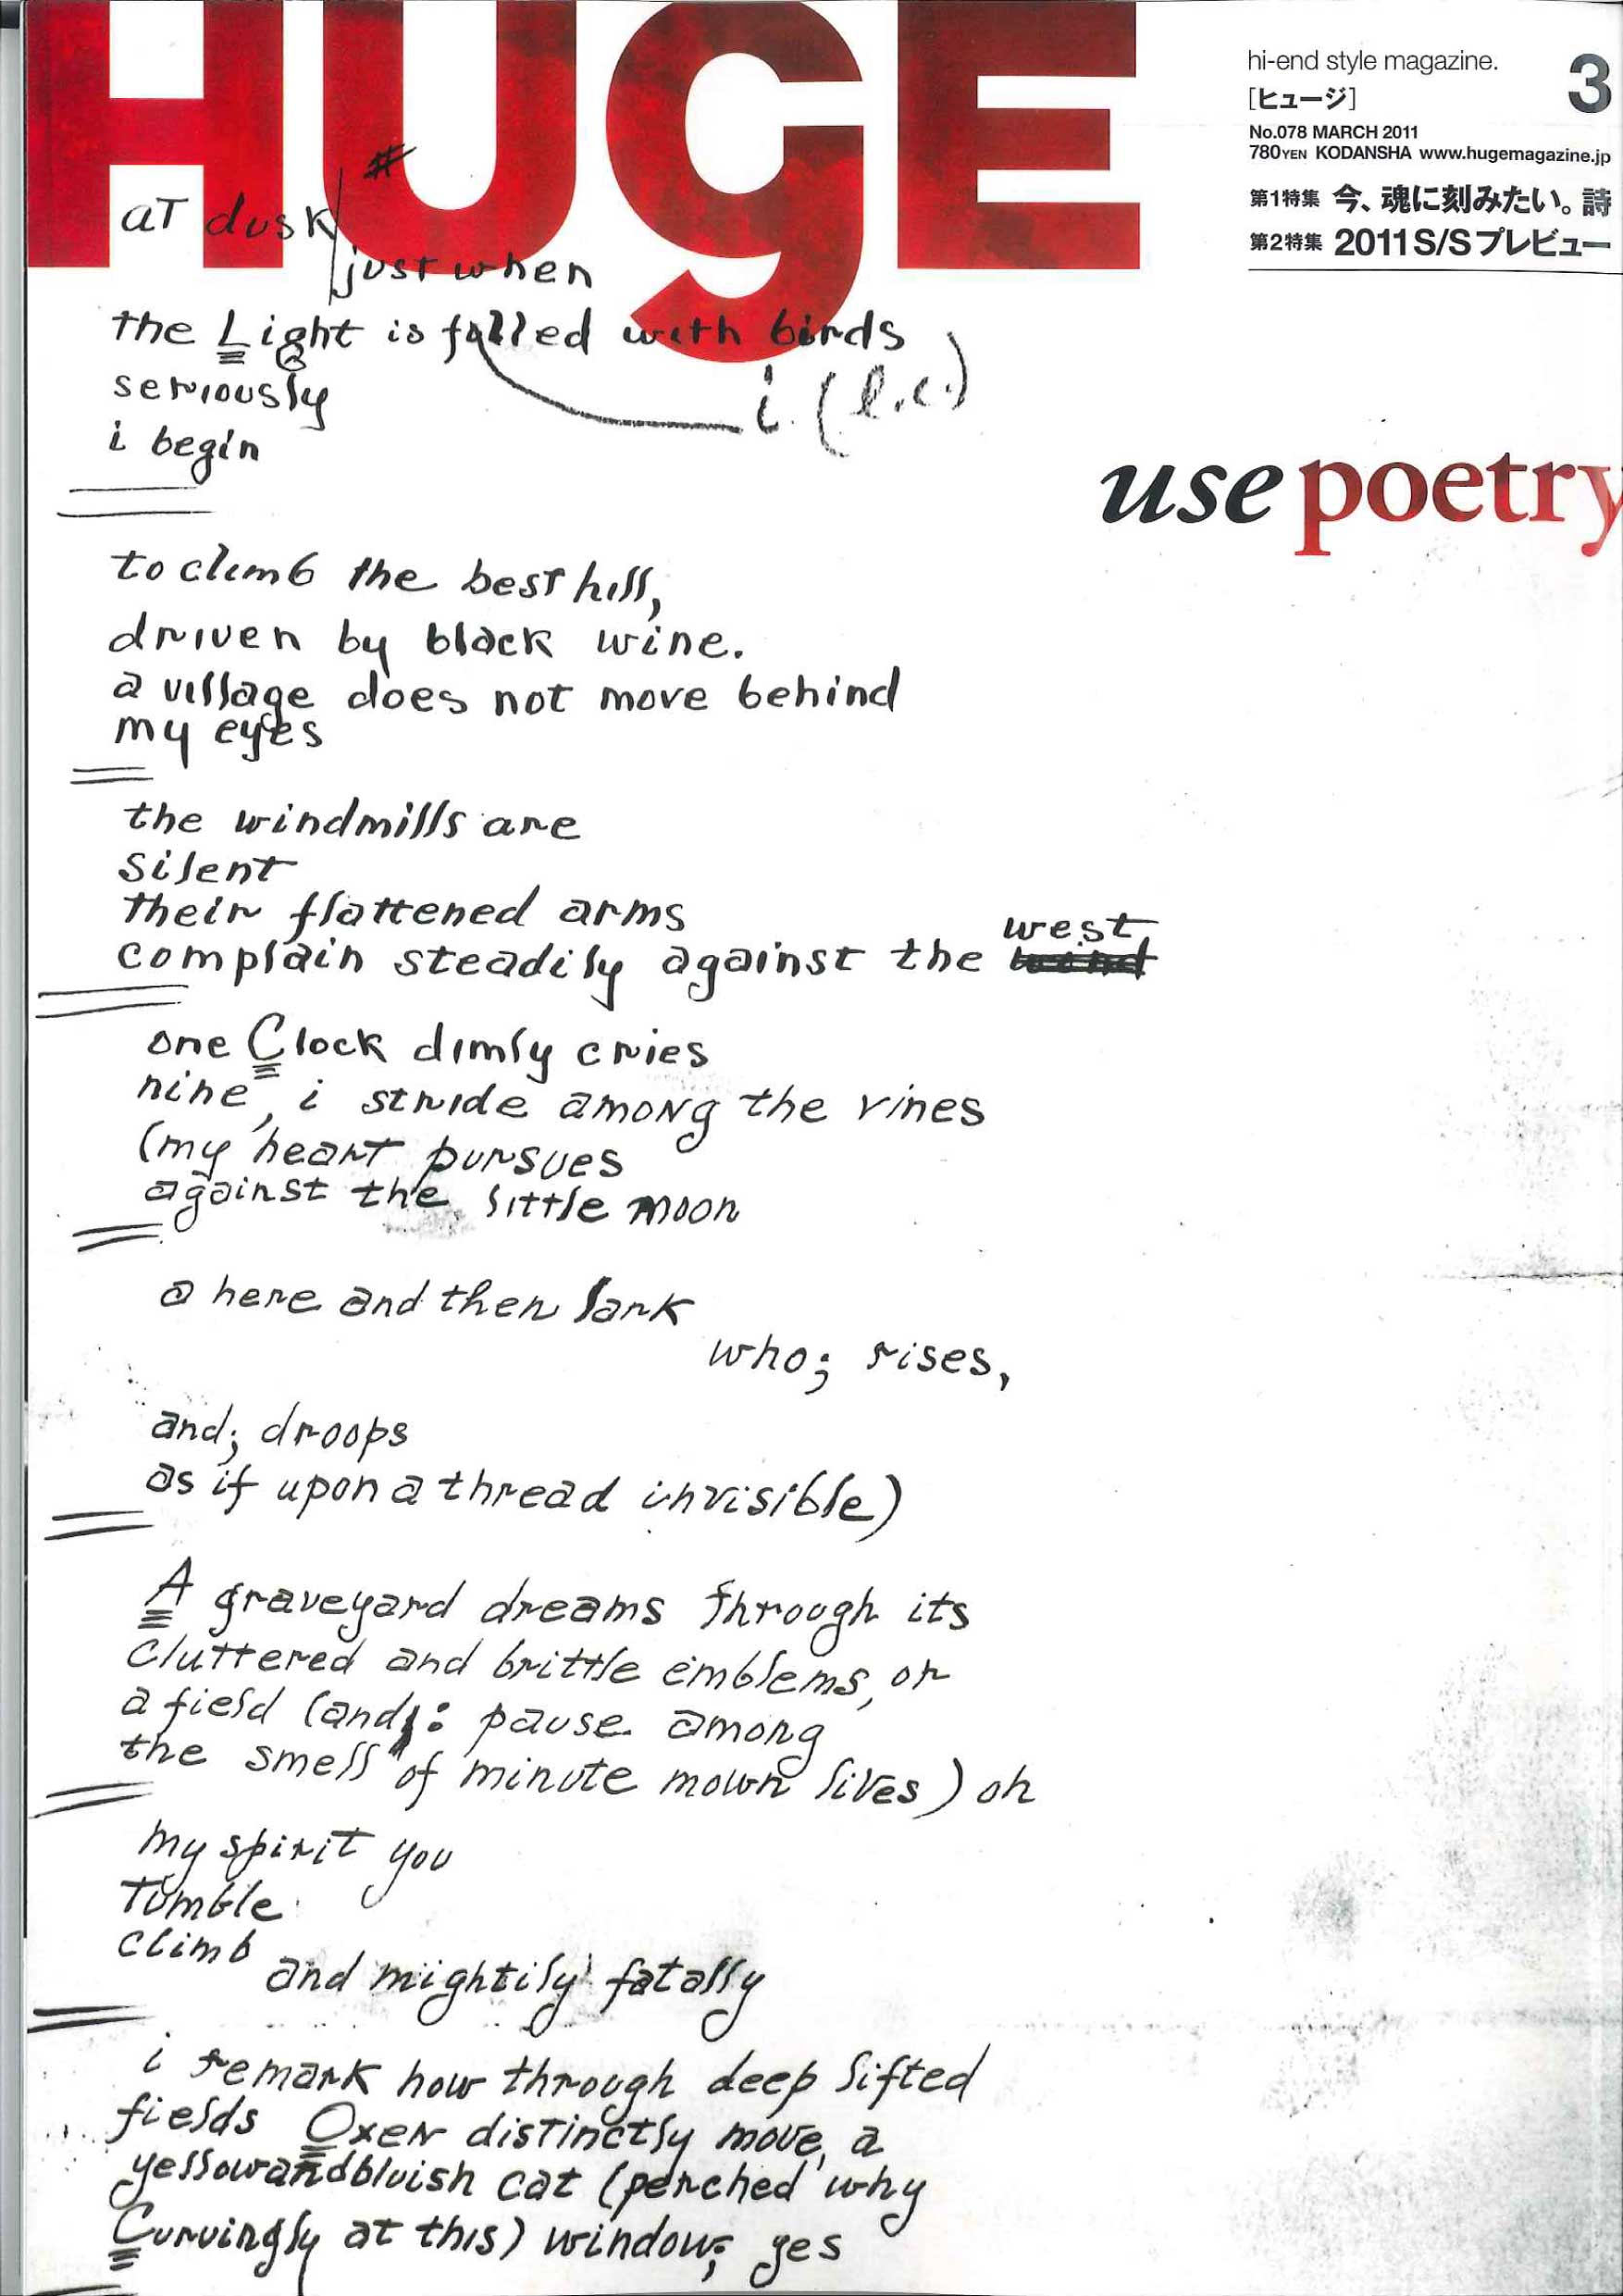 HUGE
hi-end style magazine.
3
[ヒュージ]
No.078 MARCH 2011
780YEN KODANSHA www.hugemagazine.jp
第1特集 今、魂に刻みたい。詩
第2特集 2011 S/S プレビュー
use poetry
#
at dusk
just when
the Light is filled with birds
i (l.c.)
seriously
i begin
to climb the best hill,
driven by black wine.
a village does not move behind
my eyes
the windmills are
silent
their flattened arms
complain steadily against the west
one Clock dimly cries
nine, i stride among the vines
(my heart pursues
against the little moon
a here and then lark
who; rises,
and; droops
as if upon a thread invisible)
A graveyard dreams through its
cluttered and brittle emblems, or
a field (and: pause among
the smell of minute mown lives) oh
my spirit you
tumble
climb
and mightily fatally
i remark how through deep lifted
fields Oxen distinctly move, a
yellowandbluish cat (perched why
Curvingly at this) window; yes